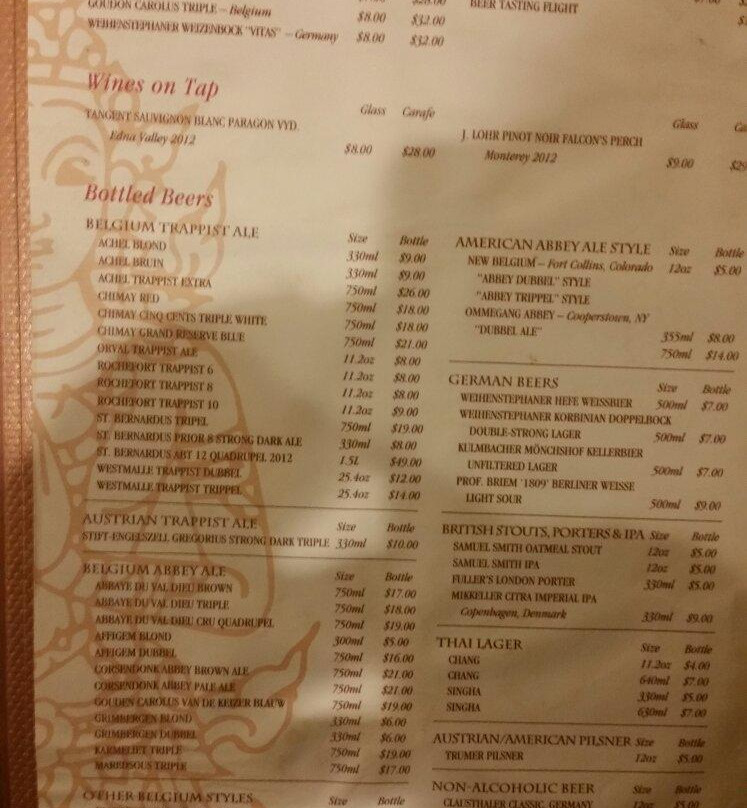 GOUDON CAROLUS TRIPLE – Belgium
WEIHENSTEPHANER WEIZENBOCK "VITAS" – Germany
$8.00 $32.00
$8.00 $32.00
BEER TASTING FLIGHT
Wines on Tap
Glass Carafe
TANGENT SAUVIGNON BLANC PARAGON VYD.
Edna Valley 2012
$8.00 $28.00
Glass
J. LOHR PINOT NOIR FALCON'S PERCH
Monterey 2012
$9.00
Bottled Beers
BELGIUM TRAPPIST ALE Size Bottle
ACHEL BLOND 330ml $9.00
ACHEL BRUIN 330ml $9.00
ACHEL TRAPPIST EXTRA 750ml $26.00
CHIMAY RED 750ml $18.00
CHIMAY CINQ CENTS TRIPLE WHITE 750ml $18.00
CHIMAY GRAND RESERVE BLUE 750ml $21.00
ORVAL TRAPPIST ALE 11.2oz $8.00
ROCHEFORT TRAPPIST 6 11.2oz $8.00
ROCHEFORT TRAPPIST 8 11.2oz $8.00
ROCHEFORT TRAPPIST 10 11.2oz $9.00
ST. BERNARDUS TRIPEL 750ml $19.00
ST. BERNARDUS PRIOR 8 STRONG DARK ALE 330ml $8.00
ST. BERNARDUS ABT 12 QUADRUPEL 2012 1.5L $49.00
WESTMALLE TRAPPIST DUBBEL 25.4oz $12.00
WESTMALLE TRAPPIST TRIPPEL 25.4oz $14.00
AUSTRIAN TRAPPIST ALE Size Bottle
STIFT-ENGELSZELL GREGORIUS STRONG DARK TRIPLE 330ml $10.00
BELGIUM ABBEY ALE Size Bottle
ABBAYE DU VAL DIEU BROWN 750ml $17.00
ABBAYE DU VAL DIEU TRIPLE 750ml $18.00
ABBAYE DU VAL DIEU CRU QUADRUPEL 750ml $19.00
AFFIGEM BLOND 300ml $5.00
AFFIGEM DUBBEL 750ml $16.00
CORSENDONK ABBEY BROWN ALE 750ml $21.00
CORSENDONK ABBEY PALE ALE 750ml $21.00
GOUDEN CAROLUS VAN DE KEIZER BLAUW 750ml $19.00
GRIMBERGEN BLOND 330ml $6.00
GRIMBERGEN DUBBEL 330ml $6.00
KARMELIET TRIPLE 750ml $19.00
MAREDSOUS TRIPLE 750ml $17.00
OTHER BELGIUM STYLES Size Bottle
AMERICAN ABBEY ALE STYLE Size Bottle
NEW BELGIUM – Fort Collins, Colorado 12oz $5.00
"ABBEY DUBBEL" STYLE
"ABBEY TRIPPEL" STYLE
OMMEGANG ABBEY – Cooperstown, NY
"DUBBEL ALE" 355ml $8.00
750ml $14.00
GERMAN BEERS Size Bottle
WEIHENSTEPHANER HEFE WEISSBIER 500ml $7.00
WEIHENSTEPHANER KORBINIAN DOPPELBOCK
DOUBLE-STRONG LAGER 500ml $7.00
KULMBACHER MÖNCHSHOF KELLERBIER
UNFILTERED LAGER 500ml $7.00
PROF. BRIEM '1809' BERLINER WEISSE
LIGHT SOUR 500ml $9.00
BRITISH STOUTS, PORTERS & IPA Size Bottle
SAMUEL SMITH OATMEAL STOUT 12oz $5.00
SAMUEL SMITH IPA 12oz $5.00
FULLER'S LONDON PORTER 330ml $5.00
MIKKELLER CITRA IMPERIAL IPA
Copenhagen, Denmark 330ml $9.00
THAI LAGER Size Bottle
CHANG 11.2oz $4.00
CHANG 640ml $7.00
SINGHA 330ml $5.00
SINGHA 630ml $7.00
AUSTRIAN/AMERICAN PILSNER Size Bottle
TRUMER PILSNER 12oz $5.00
NON-ALCOHOLIC BEER Size Bottle
CLAUSTHALER CLASSIC, GERMANY